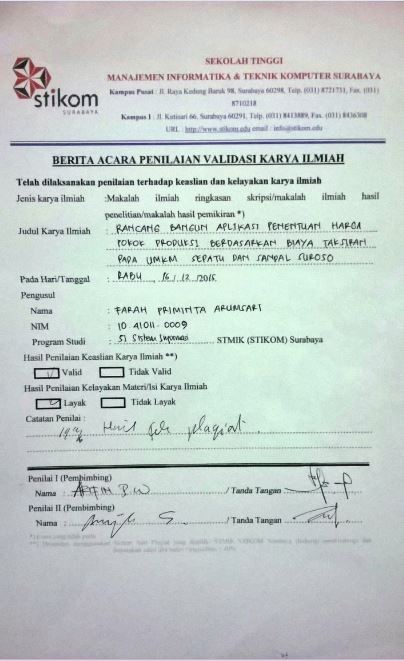 stikom
SURABAYA
SEKOLAH TINGGI
MANAJEMEN INFORMATIKA & TEKNIK KOMPUTER SURABAYA
Kampus Pusat : Jl. Raya Kedung Baruk 98, Surabaya 60298, Telp. (031) 8721731, Fax. (031)
8710218
Kampus I : Jl. Kutisari 66, Surabaya 60291, Telp. (031) 8413889, Fax. (031) 8436308
URL : http://www.stikom.edu email : info@stikom.edu
BERITA ACARA PENILAIAN VALIDASI KARYA ILMIAH
Telah dilaksanakan penilaian terhadap keaslian dan kelayakan karya ilmiah
Jenis karya ilmiah :Makalah ilmiah ringkasan skripsi/makalah ilmiah hasil
penelitian/makalah hasil pemikiran *)
Judul Karya Ilmiah : RANCANG BANGUN APLIKASI PENENTUAN HARGA
POKOK PRODUKSI BERDASARKAN BIAYA TAKSIRAN
PADA UMKM SEPATU DAN SANDAL SUROSO
Pada Hari/Tanggal : RABU, 16/12/2015
Pengusul
Nama : FARAH PRIMINTA ARUMSARI
NIM : 10.41011.0009
Program Studi : S1 Sistem Informasi STMIK (STIKOM) Surabaya
Hasil Penilaian Keaslian Karya Ilmiah **)
Valid Tidak Valid
Hasil Penilaian Kelayakan Materi/Isi Karya Ilmiah
Layak Tidak Layak
Catatan Penilai :
Hasil plagiat.
Penilai I (Pembimbing)
Nama : / Tanda Tangan
Penilai II (Pembimbing)
Nama : / Tanda Tangan